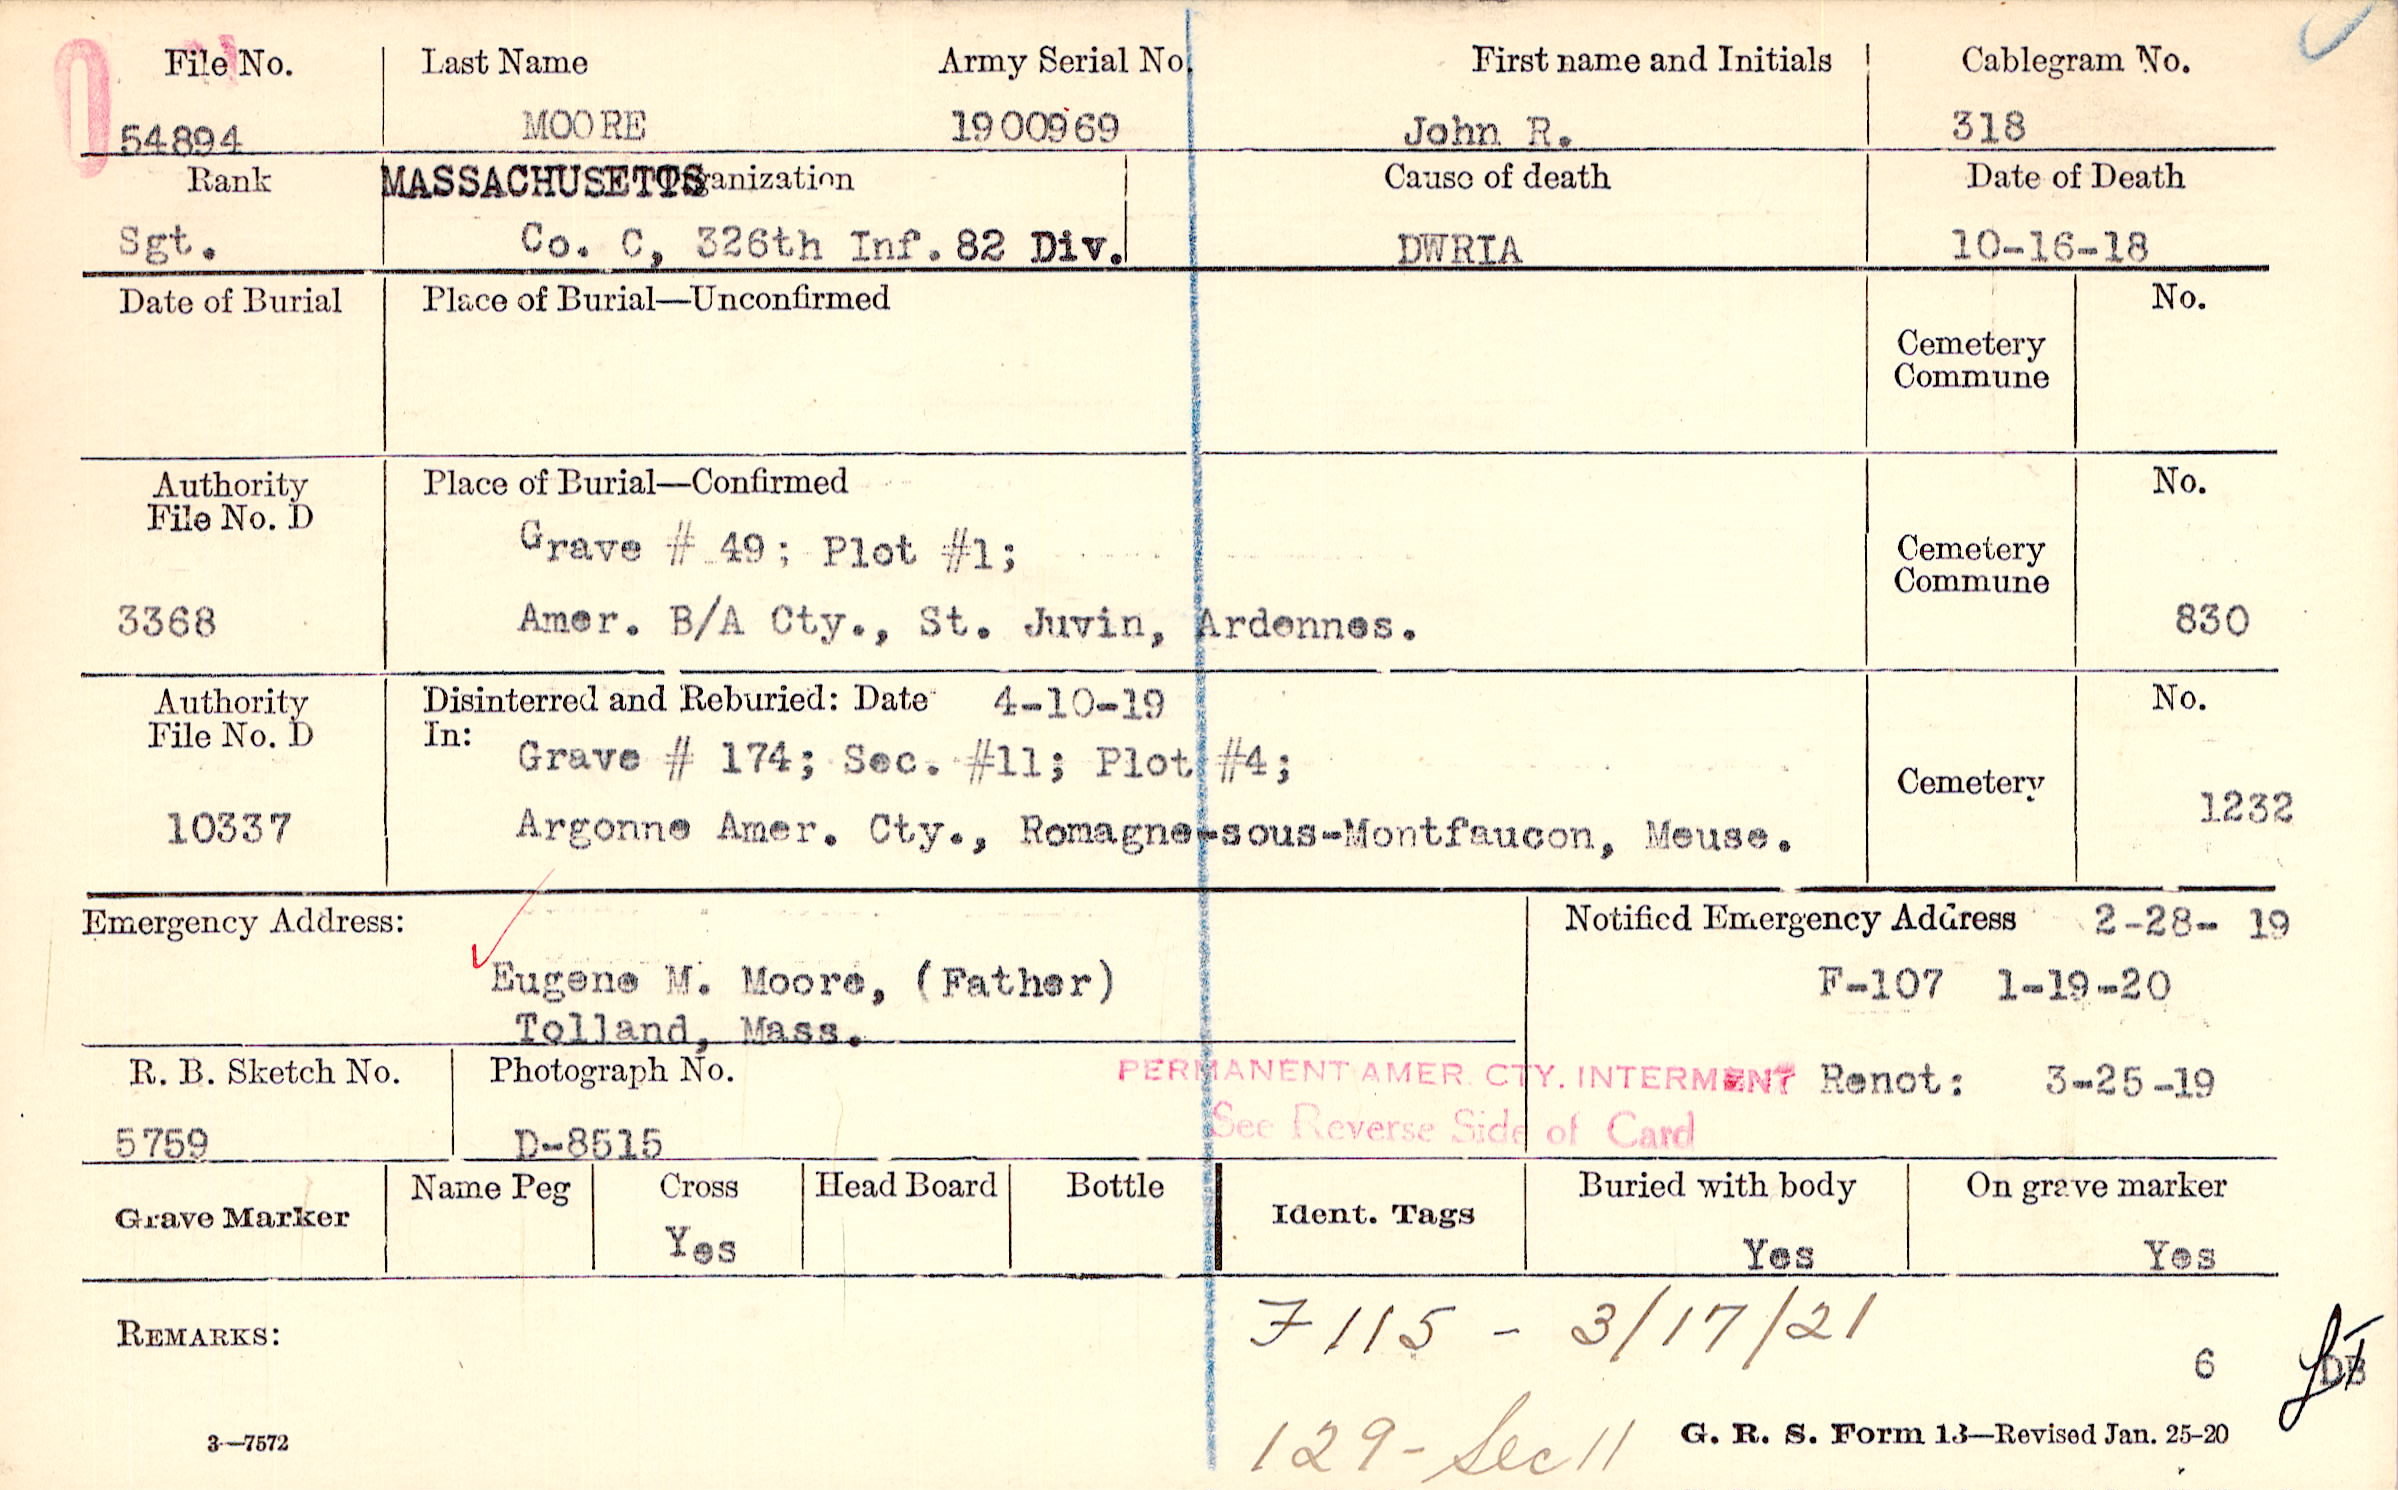 File No. Last Name Army Serial No. First name and Initials Cablegram No.
54894 MOORE 1900969 John R. 318
Rank MASSACHUSETTS Organization Cause of death Date of Death
Sgt. Co. C, 326th Inf. 82 Div. DWRIA 10-16-18
Date of Burial Place of Burial—Unconfirmed No.
Cemetery
Commune
Authority Place of Burial—Confirmed No.
File No. D
Grave # 49; Plot #1;
Cemetery
Commune
3368 Amer. B/A Cty., St. Juvin, Ardennes. 830
Authority Disinterred and Reburied: Date 4-10-19 No.
File No. D In:
Grave # 174; Sec. #11; Plot #4;
Cemetery
10337 Argonne Amer. Cty., Romagne-sous-Montfaucon, Meuse. 1232
Emergency Address: Notified Emergency Address 2-28- 19
Eugene M. Moore, (Father) F-107 1-19-20
Tolland, Mass.
R. B. Sketch No. Photograph No. PERMANENT AMER. CTY. INTERMENT Renot: 3-25-19
See Reverse Side of Card
5759 D-8515
Grave Marker Name Peg Cross Head Board Bottle Ident. Tags Buried with body On grave marker
Yes Yes Yes
REMARKS: F 115 - 3/17/21
6
129 - Sec 11
3—7572 G. R. S. Form 13—Revised Jan. 25-20